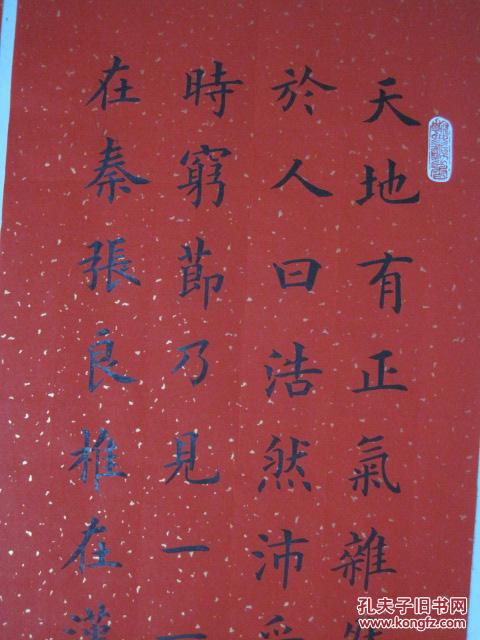 天地有正氣雜
於人曰浩然沛
時窮節乃見一一
在秦張良椎在漢
孔夫子旧书网
www.kongfz.com